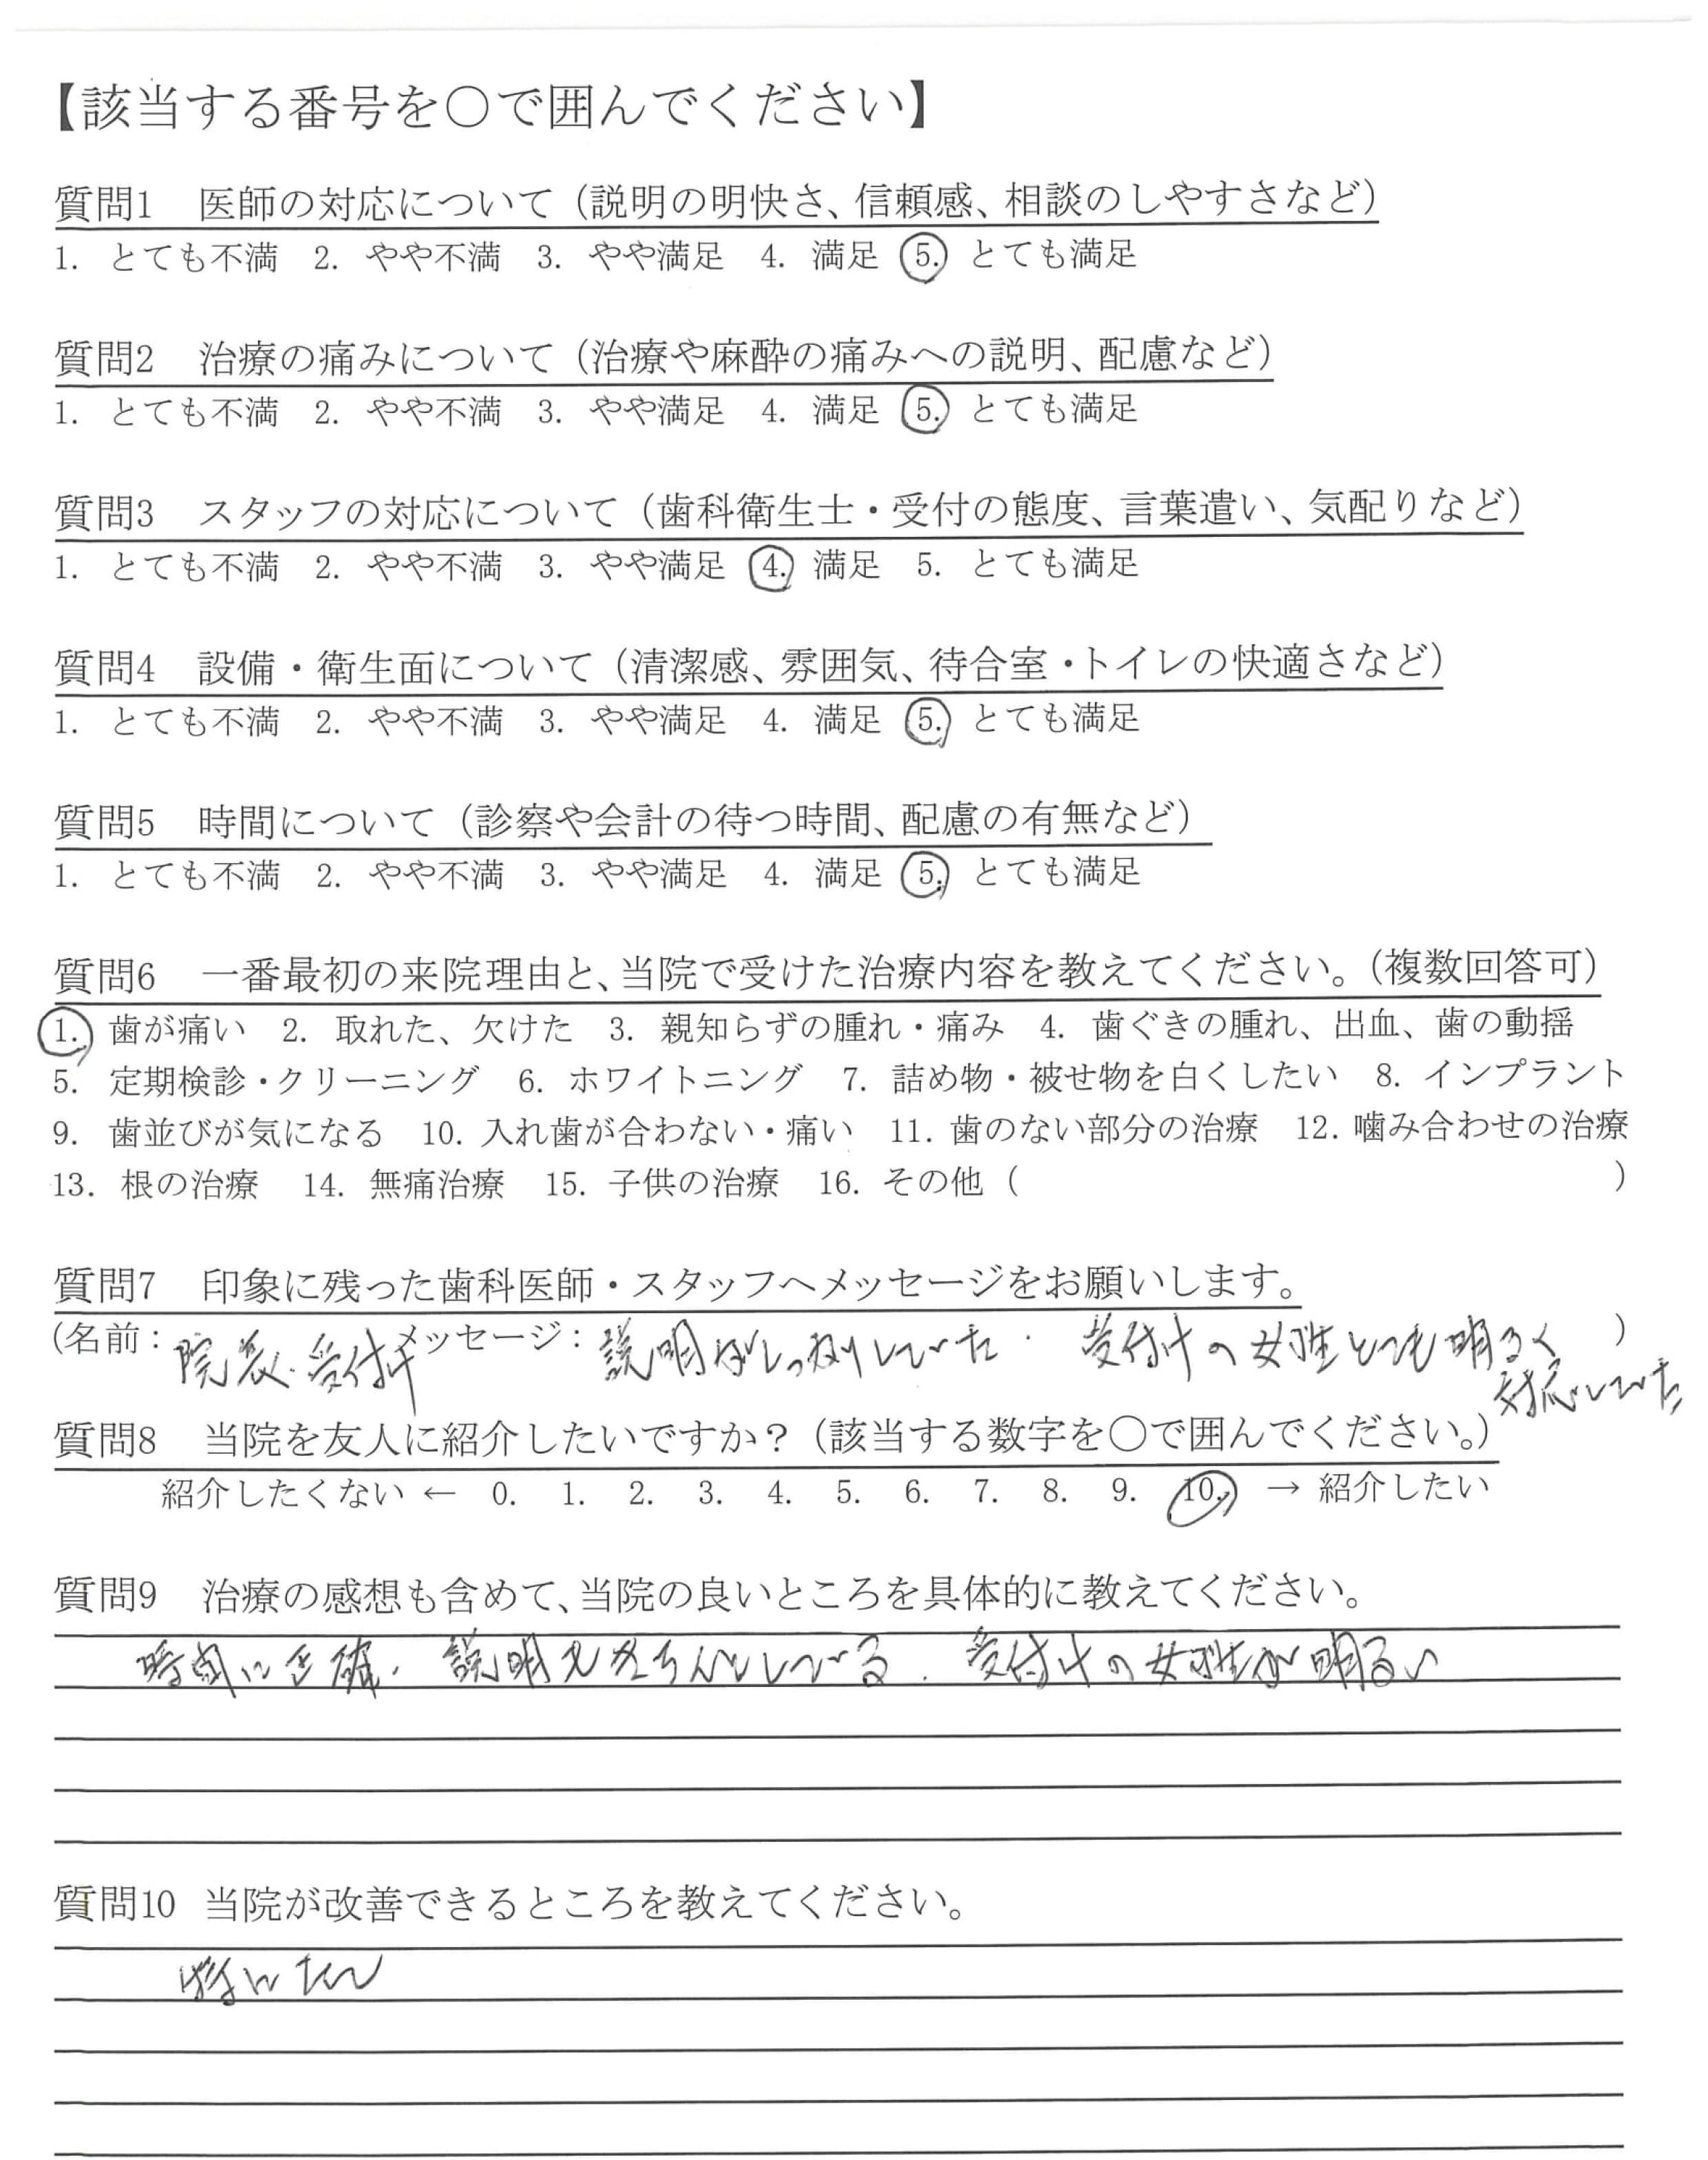 【該当する番号を○で囲んでください】
質問1　医師の対応について（説明の明快さ、信頼感、相談のしやすさなど）
1. とても不満　2. やや不満　3. やや満足　4. 満足　5. とても満足
質問2　治療の痛みについて（治療や麻酔の痛みへの説明、配慮など）
1. とても不満　2. やや不満　3. やや満足　4. 満足　5. とても満足
質問3　スタッフの対応について（歯科衛生士・受付の態度、言葉遣い、気配りなど）
1. とても不満　2. やや不満　3. やや満足　4. 満足　5. とても満足
質問4　設備・衛生面について（清潔感、雰囲気、待合室・トイレの快適さなど）
1. とても不満　2. やや不満　3. やや満足　4. 満足　5. とても満足
質問5　時間について（診察や会計の待つ時間、配慮の有無など）
1. とても不満　2. やや不満　3. やや満足　4. 満足　5. とても満足
質問6　一番最初の来院理由と、当院で受けた治療内容を教えてください。（複数回答可）
1. 歯が痛い　2. 取れた、欠けた　3. 親知らずの腫れ・痛み　4. 歯ぐきの腫れ、出血、歯の動揺
5. 定期検診・クリーニング　6. ホワイトニング　7. 詰め物・被せ物を白くしたい　8. インプラント
9. 歯並びが気になる　10. 入れ歯が合わない・痛い　11. 歯のない部分の治療　12. 噛み合わせの治療
13. 根の治療　14. 無痛治療　15. 子供の治療　16. その他（　　　）
質問7　印象に残った歯科医師・スタッフへメッセージをお願いします。
（名前：院長・受付け メッセージ：説明がしっかりしていた．受付けの女性とても明るく）
対応していた
質問8　当院を友人に紹介したいですか？（該当する数字を○で囲んでください。）
紹介したくない ← 0. 1. 2. 3. 4. 5. 6. 7. 8. 9. 10. → 紹介したい
質問9　治療の感想も含めて、当院の良いところを具体的に教えてください。
時間に正確．説明もきちんとしている．受付けの女性が明るい
質問10 当院が改善できるところを教えてください。
特になし